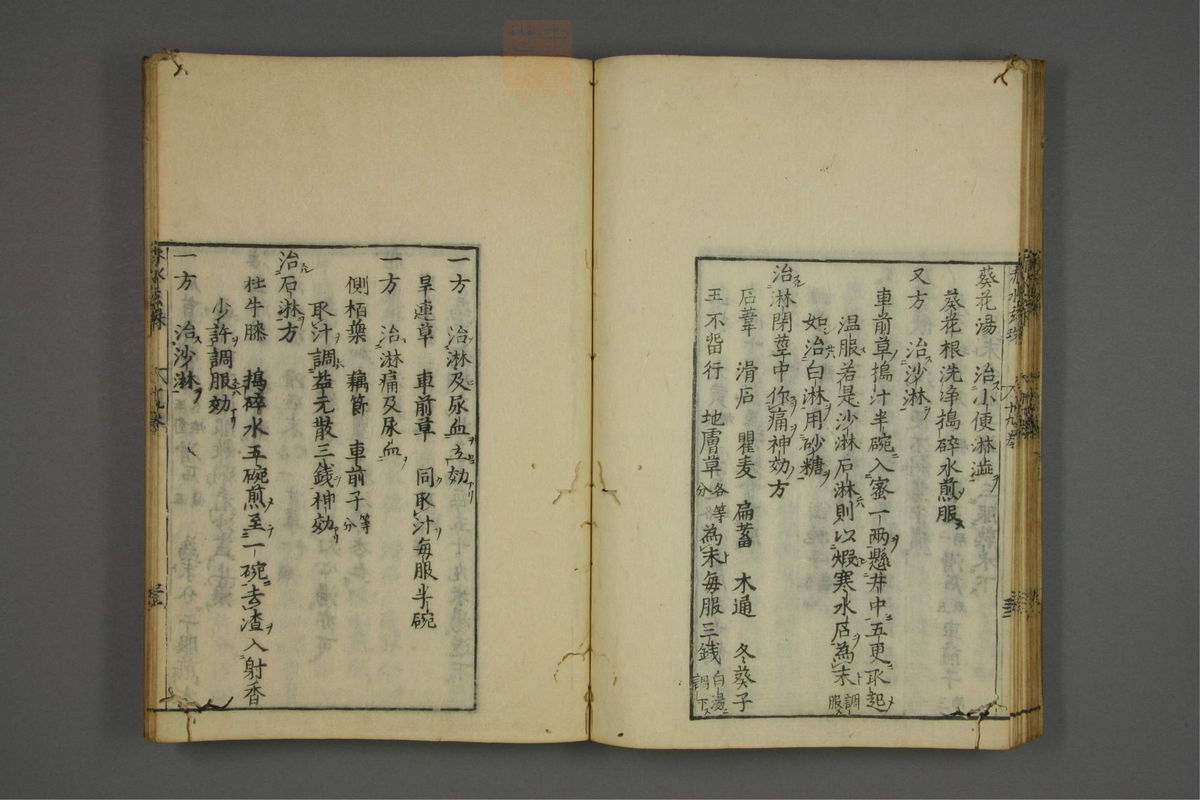 葵花湯 治小便淋澁
葵花根洗浄搗碎水煎服
又方 治沙淋
車前草搗汁半碗入蜜一两懸井中五更取起
温服若是沙淋石淋則以煆寒水石為末調服
如治白淋用砂糖
治淋閉莖中作痛神効方
石葦 滑石 瞿麦 扁蓄 木通 冬葵子
王不畱行 地膚草各等分為末每服三錢白湯調下
一方 治淋及尿血立効
旱連草 車前草 同取汁每服半碗
一方 治淋痛及尿血
側栢葉 藕節 車前子等分
取汁調益元散三錢神効
治石淋方
杜牛膝 搗碎水五碗煎至一碗去渣入射香
少許調服効
一方 治沙淋